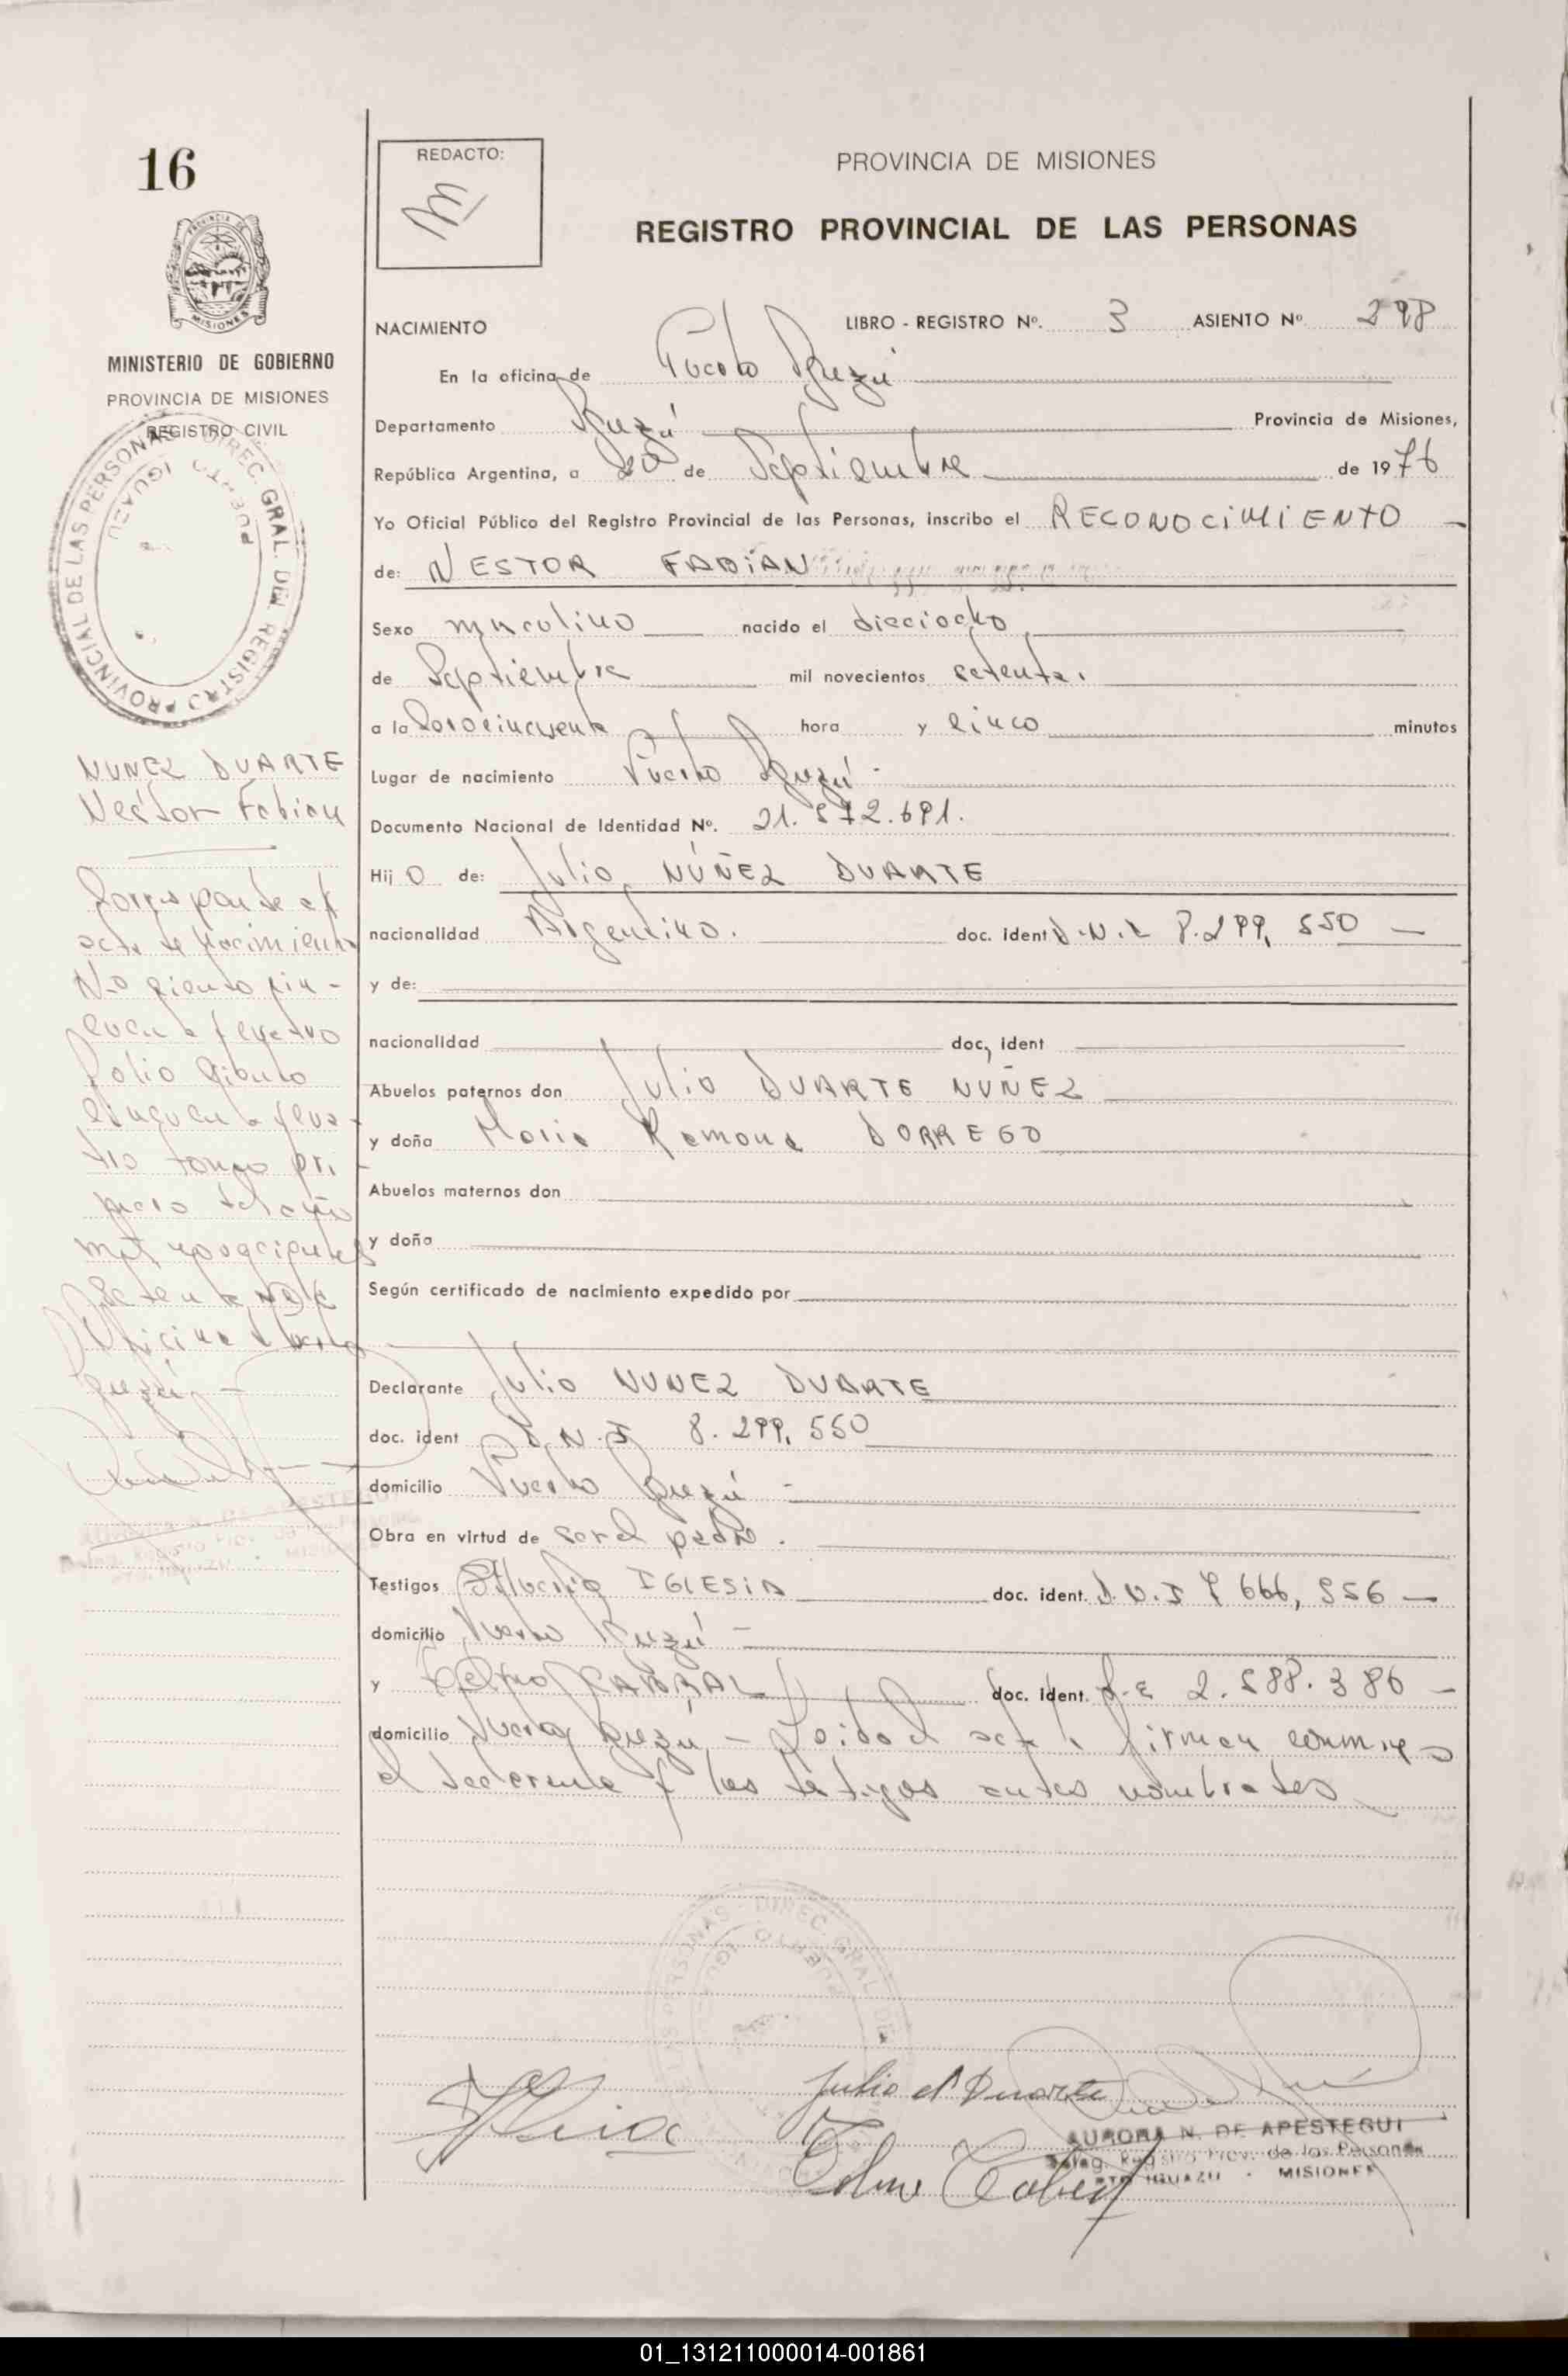 16
MINISTERIO DE GOBIERNO
PROVINCIA DE MISIONES
REGISTRO CIVIL
DIREC. GRAL. DEL REGISTRO PROVINCIAL DE LAS PERSONAS
PUERTO IGUAZU
NUÑEZ DUARTE
Nestor Fabian
Corresponde al
acta de Nacimiento
No ciento cin-
cuenta y cuatro
folio ciento
cincuenta y cua-
tro tomo pri-
mero del año
mil novecientos
setenta de
Oficina Puerto
Iguazú -
REDACTO:
PROVINCIA DE MISIONES
REGISTRO PROVINCIAL DE LAS PERSONAS
NACIMIENTO LIBRO - REGISTRO Nº. 3 ASIENTO Nº 298
En la oficina de Puerto Iguazú
Departamento Iguazú Provincia de Misiones,
República Argentina, a 20 de Septiembre de 1976
Yo Oficial Público del Registro Provincial de las Personas, inscribo el RECONOCIMIENTO -
de: NESTOR FABIAN
Sexo masculino nacido el dieciocho
de Septiembre mil novecientos setenta.
a la hora y cinco minutos
Lugar de nacimiento Puerto Iguazú -
Documento Nacional de Identidad Nº. 21.572.691.
Hij o de: Julio NÚÑEZ DUARTE
nacionalidad Argentino. doc. ident D.N.I 8.299.550 -
y de:
nacionalidad doc, ident
Abuelos paternos don Julio DUARTE NÚÑEZ
y doña Maria Ramona DORREGO
Abuelos maternos don
y doña
Según certificado de nacimiento expedido por
Declarante Julio NUNEZ DUARTE
doc. ident D.N.I 8.299.550
domicilio Puerto Iguazú -
Obra en virtud de ser el padre.
Testigos IGLESIA doc. ident. D.N.I 7 666,956 -
domicilio Puerto Iguazú -
y CABRAL doc. ident. L.E 2.588.386 -
domicilio Puerto Iguazú - Leida el acta, firman conmigo
el declarante y los testigos antes nombrados
Julio N Duarte
AURORA N. DE APESTEGUI
Deleg. Registro Prov. de las Personas
PTO IGUAZU - MISIONES
01_131211000014-001861